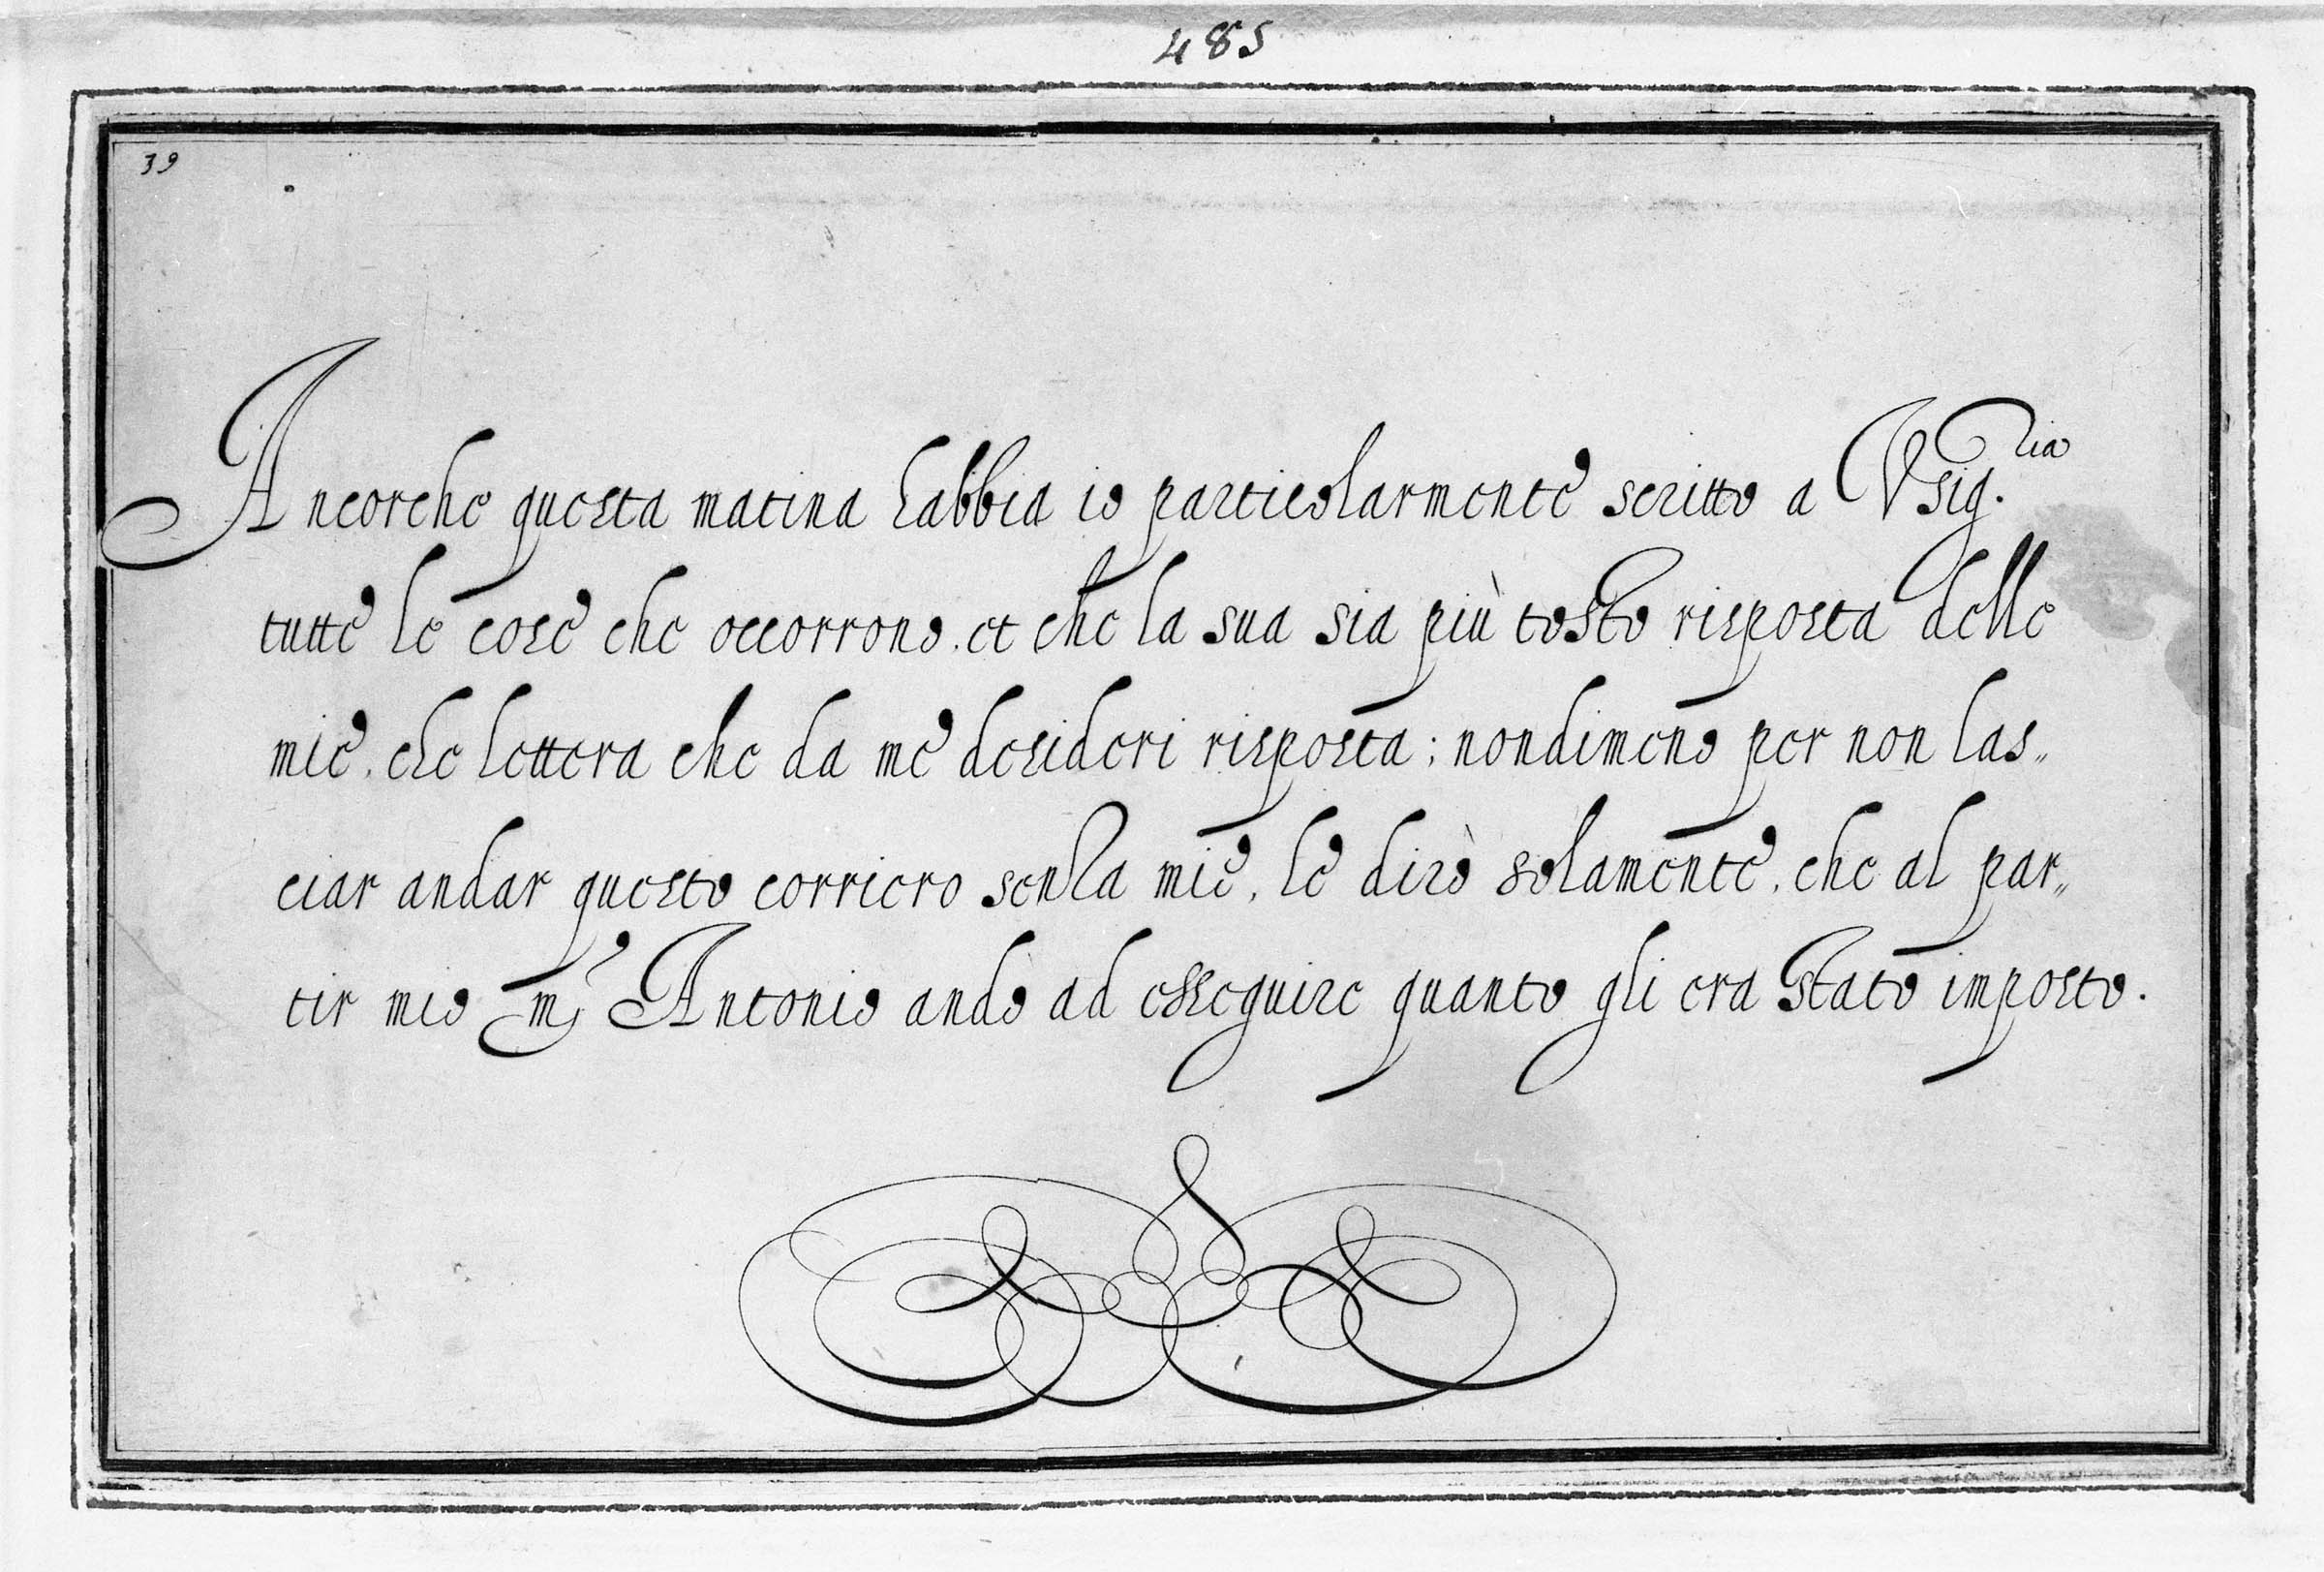 485
39
Ancorche questa matina habbia io particolarmente scritto a Vsig.ria
tutte le cose che occorrono, et che la sua sia più tosto risposta delle
mie, che lettera che da me desideri risposta; nondimeno per non las„
ciar andar questo corriero senza mie, le dirò solamente, che al par„
tir mio Antonio andò ad esseguire quanto gli era stato imposto.